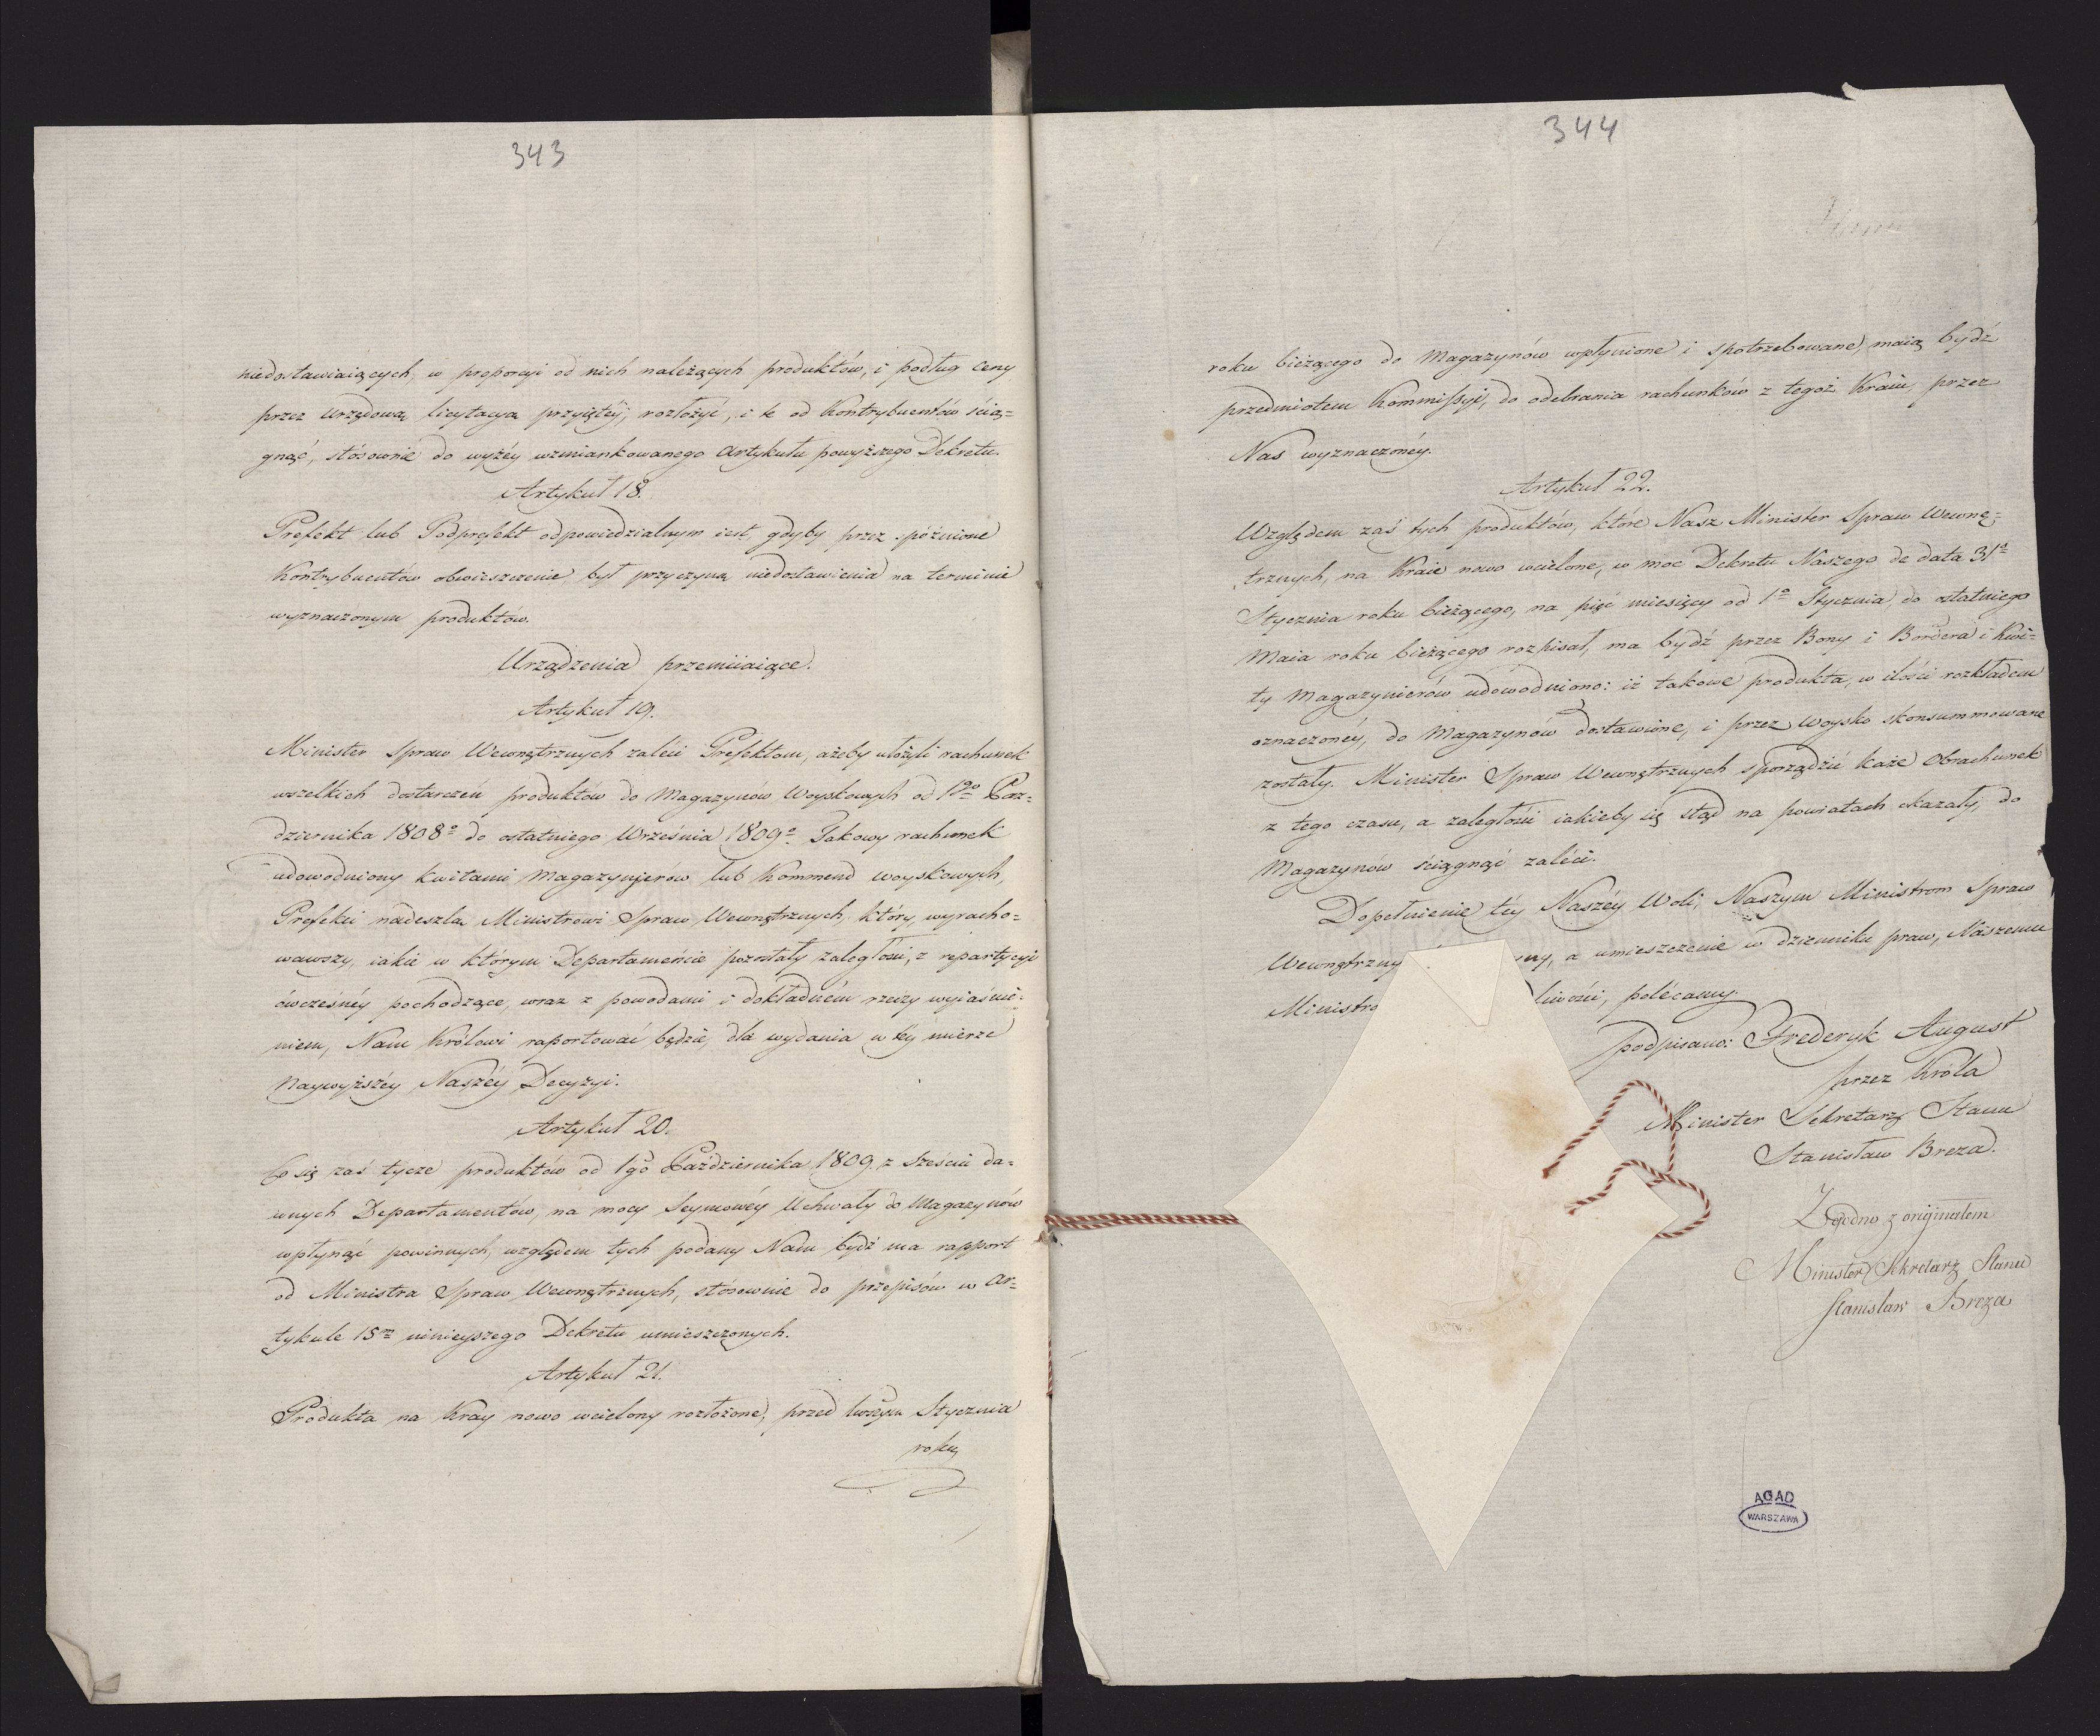 343
niedostawiaiących, w proporcyi od nich należących produktów, i podług ceny
przez Urzędową licytacyą przyiętéj, rozłożyć, i te od Kontrybuentów ścią=
gnąć, stósownié do wyżéy wzmiankowanego Artykułu powyższego Dekretu.
Artykuł 18.
Prefekt lub Podprefekt odpowiedzialnym iest, gdyby przez spóźnione
Kontrybuentów obwieszczenie był przyczyną niedostawienia na terminie
wyznaczonym produktów.
Urządzenia przemiiaiące.
Artykuł 19.
Minister Spraw Wewnętrznych zaleci Prefektom, ażeby ułożyli rachunek
wszelkich dostarczeń produktów do Magazynów Woyskowych od 1go Paź=
dziernika 1808o do ostatniego Września 1809o. Takowy rachunek
udowodniony kwitami Magazynjerów lub Kommend woyskowych,
Prefekci nadeszlą Ministrowi Spraw Wewnętrznych, który, wyracho=
wawszy, iakie w którym Departamencie pozostały zaległości, z repartycyi
ówcześnéy pochodzące, wraz z powodami i dokładném rzeczy wyiaśnie=
niem, Nam Królowi raportować będzie, dla wydania w téy mierze
Naywyższéy Naszéy Decyzyi.
Artykuł 20.
Co się zaś tycze produktów od 1go Października 1809. z sześciu da=
wnych Departamentów, na mocy Seymowéy Uchwały do Magazynów
wpłynąć powinnych, względem tych podany Nam bydź ma rapport
od Ministra Spraw Wewnętrznych, stósownie do przepisów w Ar=
tykule 15m ninieyszego Dekretu umieszczonych.
Artykuł 21.
Produkta na Kray nowo wcielony rozłożone, przed Stycznia
roku
344
roku bieżącego do Magazynów wpłynione i spotrzebowane, maią bydź
przedmiotem Kommissyi, do odebrania rachunków z tegoż Kraiu, przez
Nas wyznaczonéy.
Artykuł 22.
Względem zaś tych produktów, które Nasz Minister Spraw Wewnę=
trznych, na Kraie nowo wcielone, w moc Dekretu Naszego de data 31o
Stycznia roku bieżącego, na pięć miesięcy od 1o Stycznia, do ostatniego
Maia roku bieżącego rozpisał, ma bydź przez Bony i Borderà i Kwi=
ty Magazynierów udowodniono: iż takowe produkta, w ilości rozkładem
oznaczonéy, do Magazynów dostawione, i przez Woysko skonsummowane
zostały. Minister Spraw Wewnętrznych sporządzić każe Obrachunek
z tego czasu, a zaległości iakieby się stąd na powiatach okazały, do
Magazynów ściągnąć zaléci.
Dopełnienie téy Naszéy Woli, Naszym Ministrom Spraw
Wewnętrzny ny, a umieszczenie w dzienniku praw, Naszemu
Ministro liwości, polécamy.
podpisano: Frederyk August
przez Króla
Minister Sekretarz Stanu
Stanisław Breza.
Zgodno z originałem
Minister Sekretarz Stanu
Stanisław Breza
AGAD
WARSZAWA